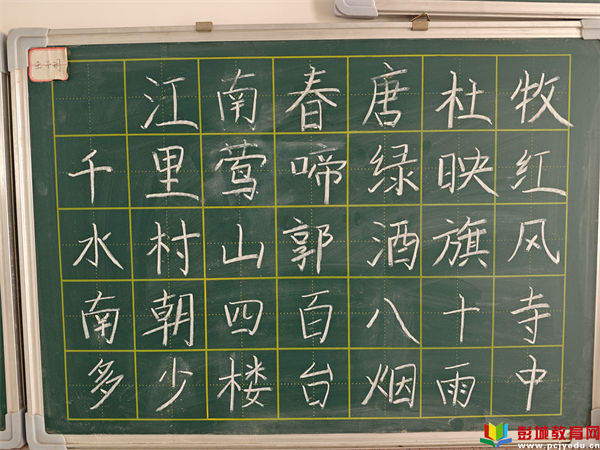 江南春唐杜牧
千里莺啼绿映红
水村山郭酒旗风
南朝四百八十寺
多少楼台烟雨中
彭城教育网
www.pcjyedu.cn